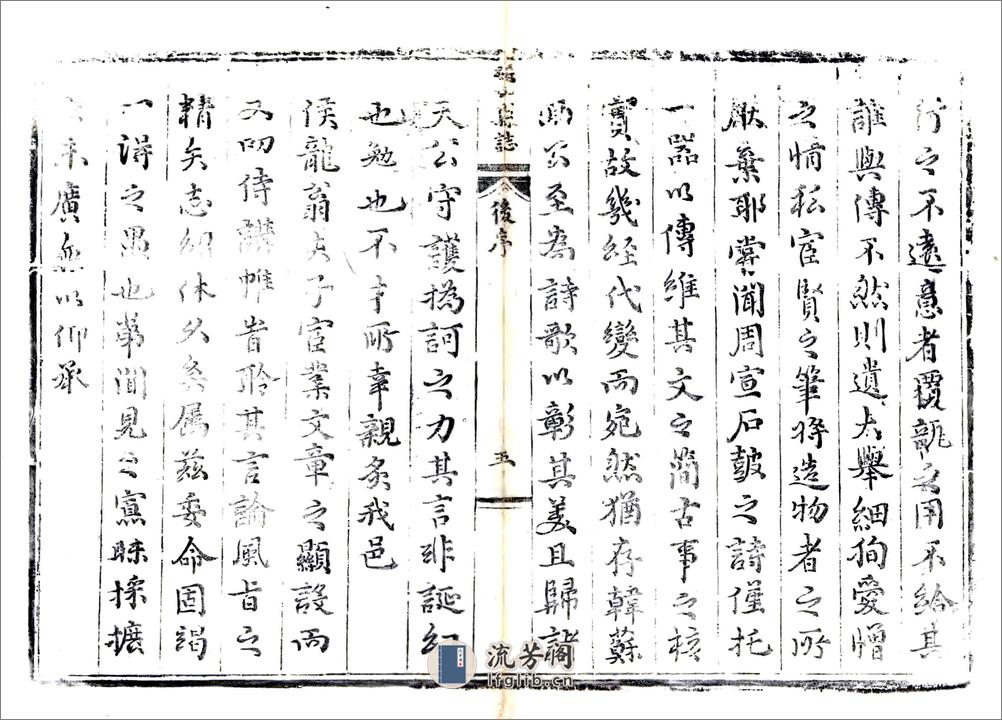 行之不遠意者覆瓿之用不給其
誰與傳不然則遺大舉細狥愛憎
之情狃宦賢之筆將造物者之所
厭棄耶嘗聞周宣石鼓之詩僅托
一器以傳維其文之簡古事之核
實故幾經代變而宛然猶存韓蘇
兩公至為詩歌以彰其美且歸諸
縣誌
後序
五
天公守護撝訶之力其言非誕幻
也勉也不才所幸親炙我邑
侯龍翁夫子宦業文章之顯設而
又叨侍講帷昔聆其言論風旨之
精矣志紹休久矣属茲委命固竭
一得之愚也第聞見之寡睞採摭
未廣無以仰承
流芳阁
lfglib.cn